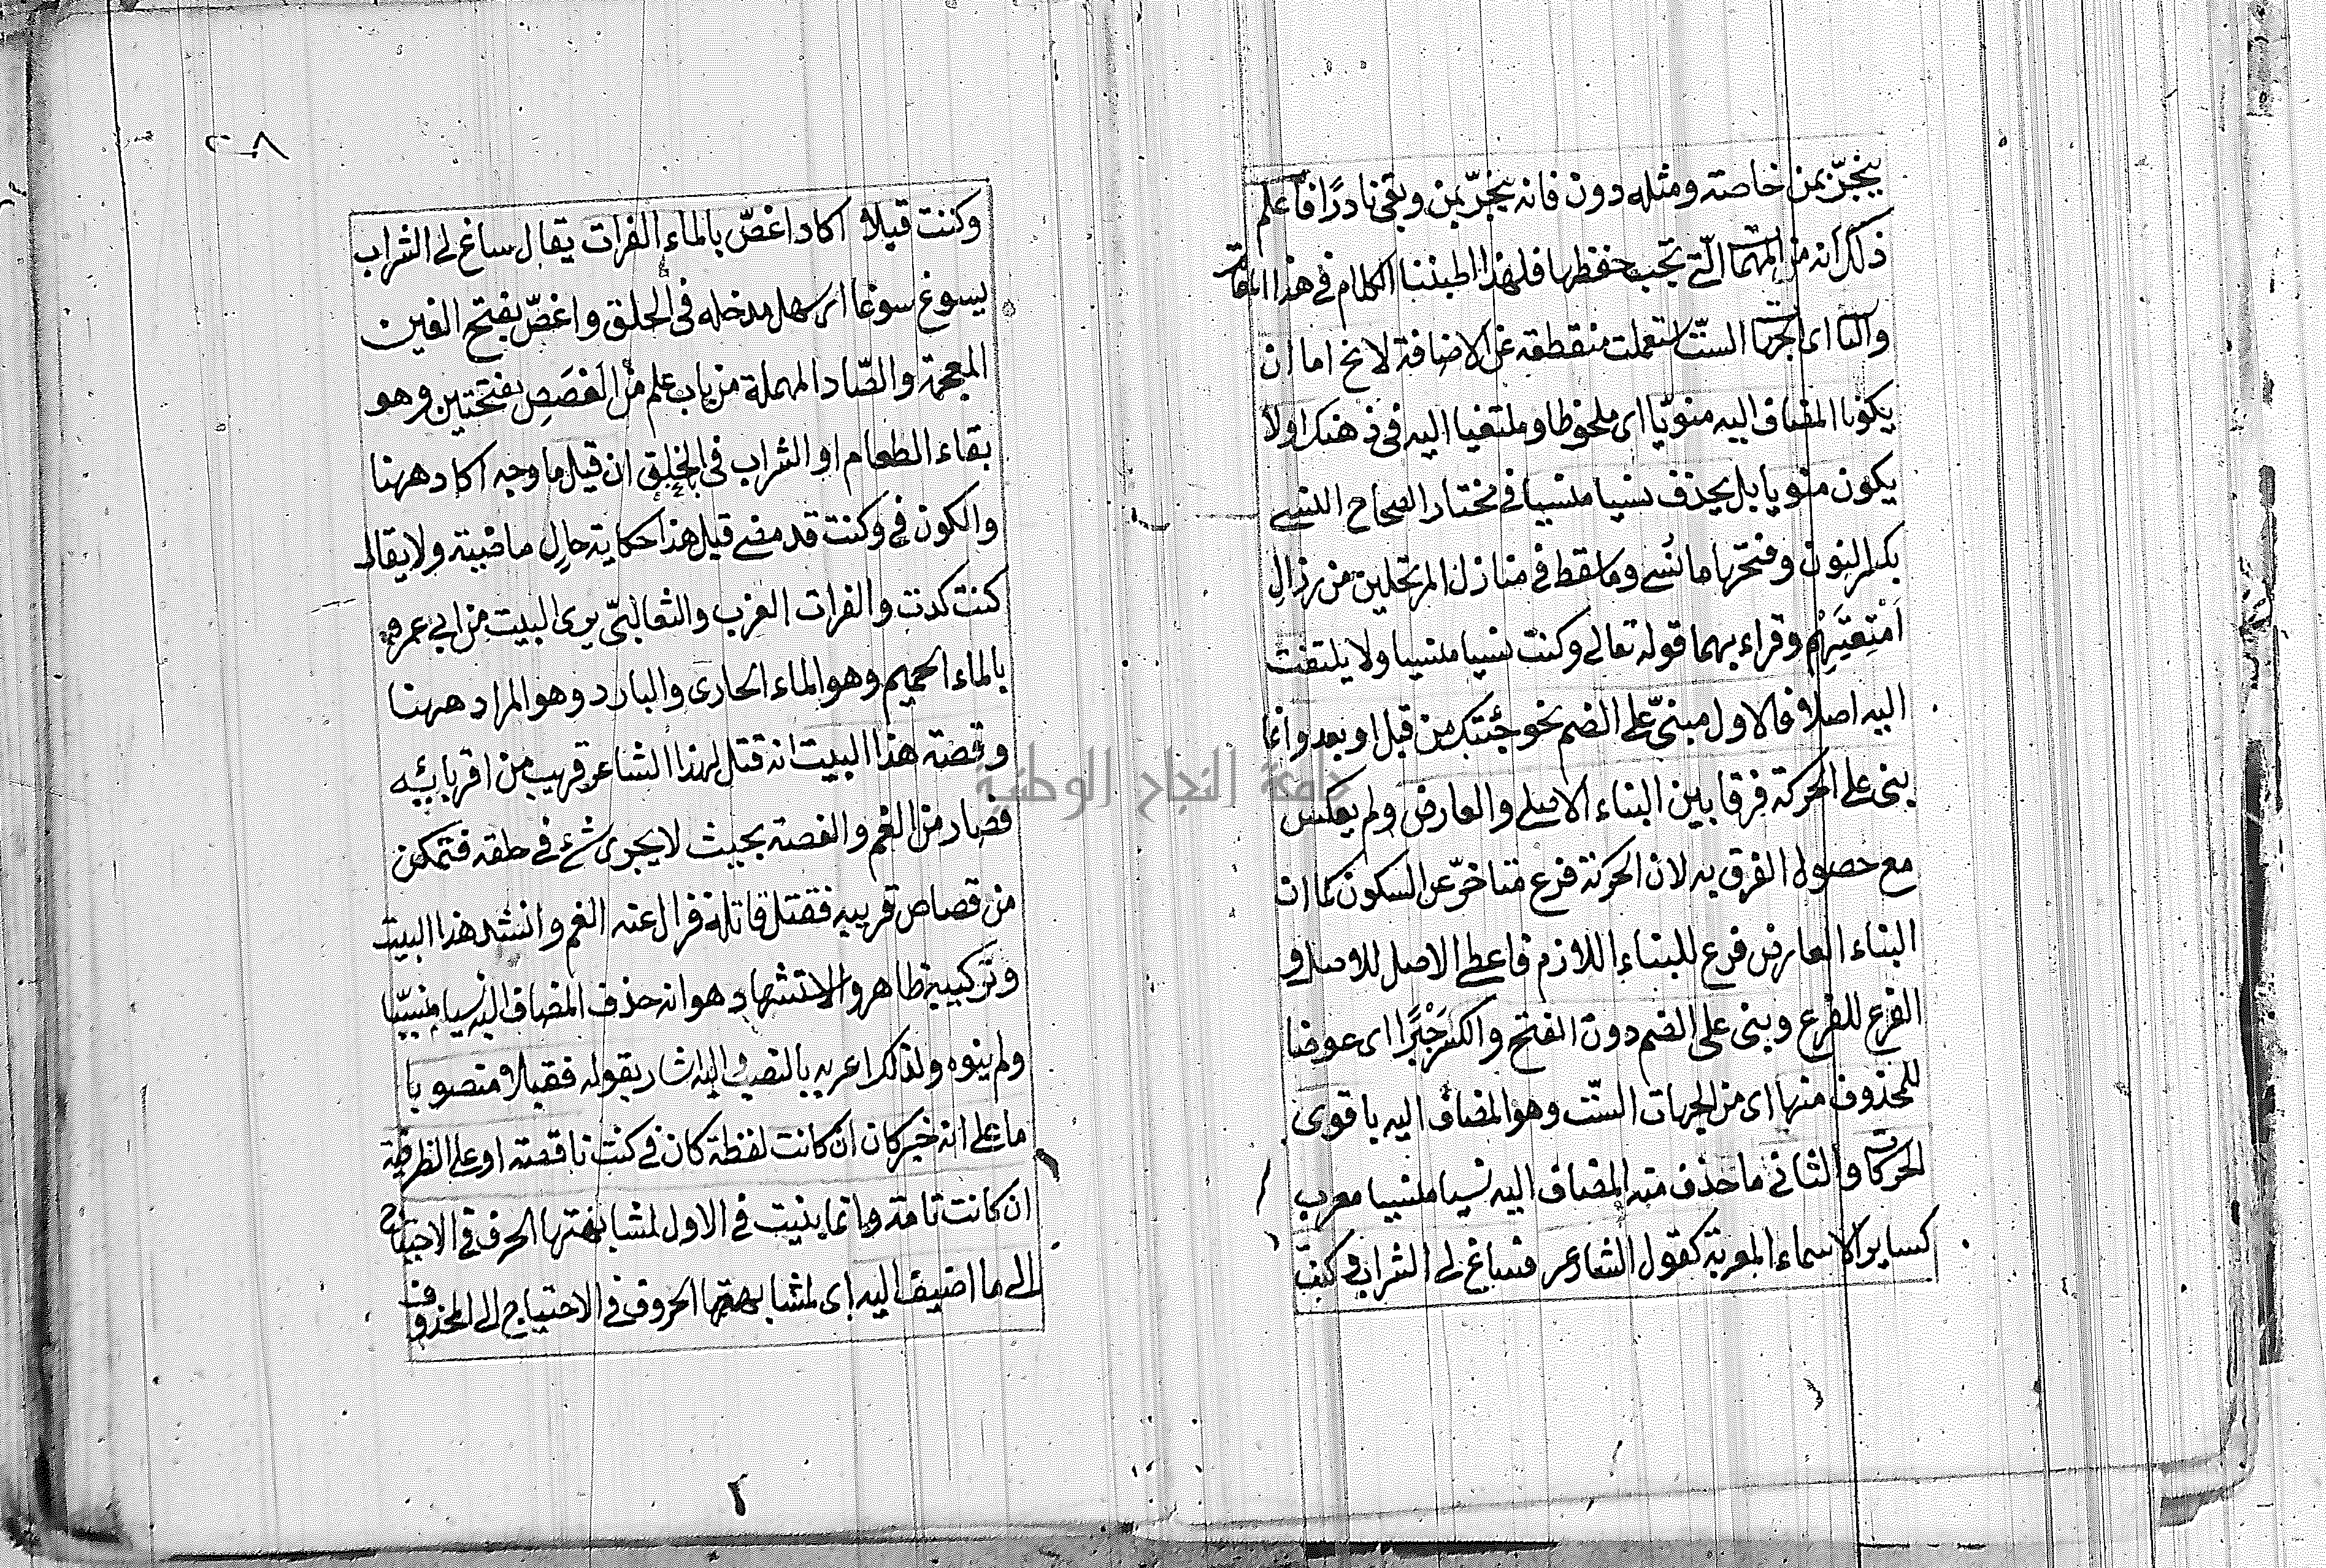 ينجرّ بمن خاصة ومثله دون فانه ينجرّ بمن وبقى نادرًا فاعلم
ذلك انه من المهمات التى تجب حفظها فلهذا اطنبنا الكلام فى هذا المقام
والست اى الجهات الستّ استعملت منقطعة عن الاضافة لا نخ اما ان
يكون المضاف اليه منويّا اى ملحوظا وملتفيا اليه فى ذهنك اولا
يكون منويا بل يحذف نسيا منسيا فى مختار الصحاح النسى
بكسر النون وفتحها ما نُسى وما سقط فى منازل المرتحلين من رذال
امتعتهم وقراء بهما قوله تعالى وكنت نسيا منسيا ولا يلتفت
اليه اصلا فالاول مبنىّ على الضم نحو جئتك من قبل او بعد وانما
بنى على الحركة فرقا بين البناء الاصلى والعارض ولم يعكس
مع حصول الفرق به لان الحركة فرع متاخّر عن السكون كما ان
البناء العارض فرع للبناء اللازم فاعطى الاصل للاصل و
الفرع للفرع وبنى على الضم دون الفتح والكسر جَبْرًا اى عوضا
للمحذوف منها اى من الجهات الستّ وهو المضاف اليه باقوى
الحركات والثانى ما حذف منه المضاف اليه نسيا منسيا معرب
كساير الاسماء المعربة كقول الشاعر فساغ لى الشراب وكنت
٢٨
وكنت قبلا اكاد اغصّ بالماء الفرات يقال ساغ لى الشراب
يسوغ سوغا اى سهل مدخله فى الحلق واغصّ بفتح الغين
المعجمة والصّاد المهملة من باب علم من الغَصَصِ بفتحتين وهو
بقاء الطعام او الشراب فى الحلق ان قيل ما وجه اكاد ههنا
والكون فى وكنت قد مضى قيل هذا حكاية حالٍ ماضية ولا يقال
كنت كدت والفرات العزب والثعالبىّ يرى البيت من ابى عمرو
بالماء الحميم وهو الماء الحارى والبارد وهو المراد ههنا
وقصة هذا البيت انه قتل لهذا الشاعر قريب من اقربائه
فصار من الغم والغصة بحيث لا يجرى شئ فى حلقه فتمكن
من قصاص قريبه فقتل قاتله فزال عنه الغم وانشد هذا البيت
وتركيبه ظاهر والاستشهاد هو انه حذف المضاف اليه نسيا منسيّا
ولم ينوه ولذلك اعربه بالنصب واليه اشار بقوله فقبلا منصوبا
ما على انه خبر كان ان كانت لفظة كان فى كنت ناقصة او على الظرفية
ان كانت تامة وانما بنيت فى الاول لمشابهتها الحرف فى الاحتياج
الى ما اضيف اليه اى لمشابهتها الحروف فى الاحتياج الى المحذوف
جامعة النجاح الوطنية